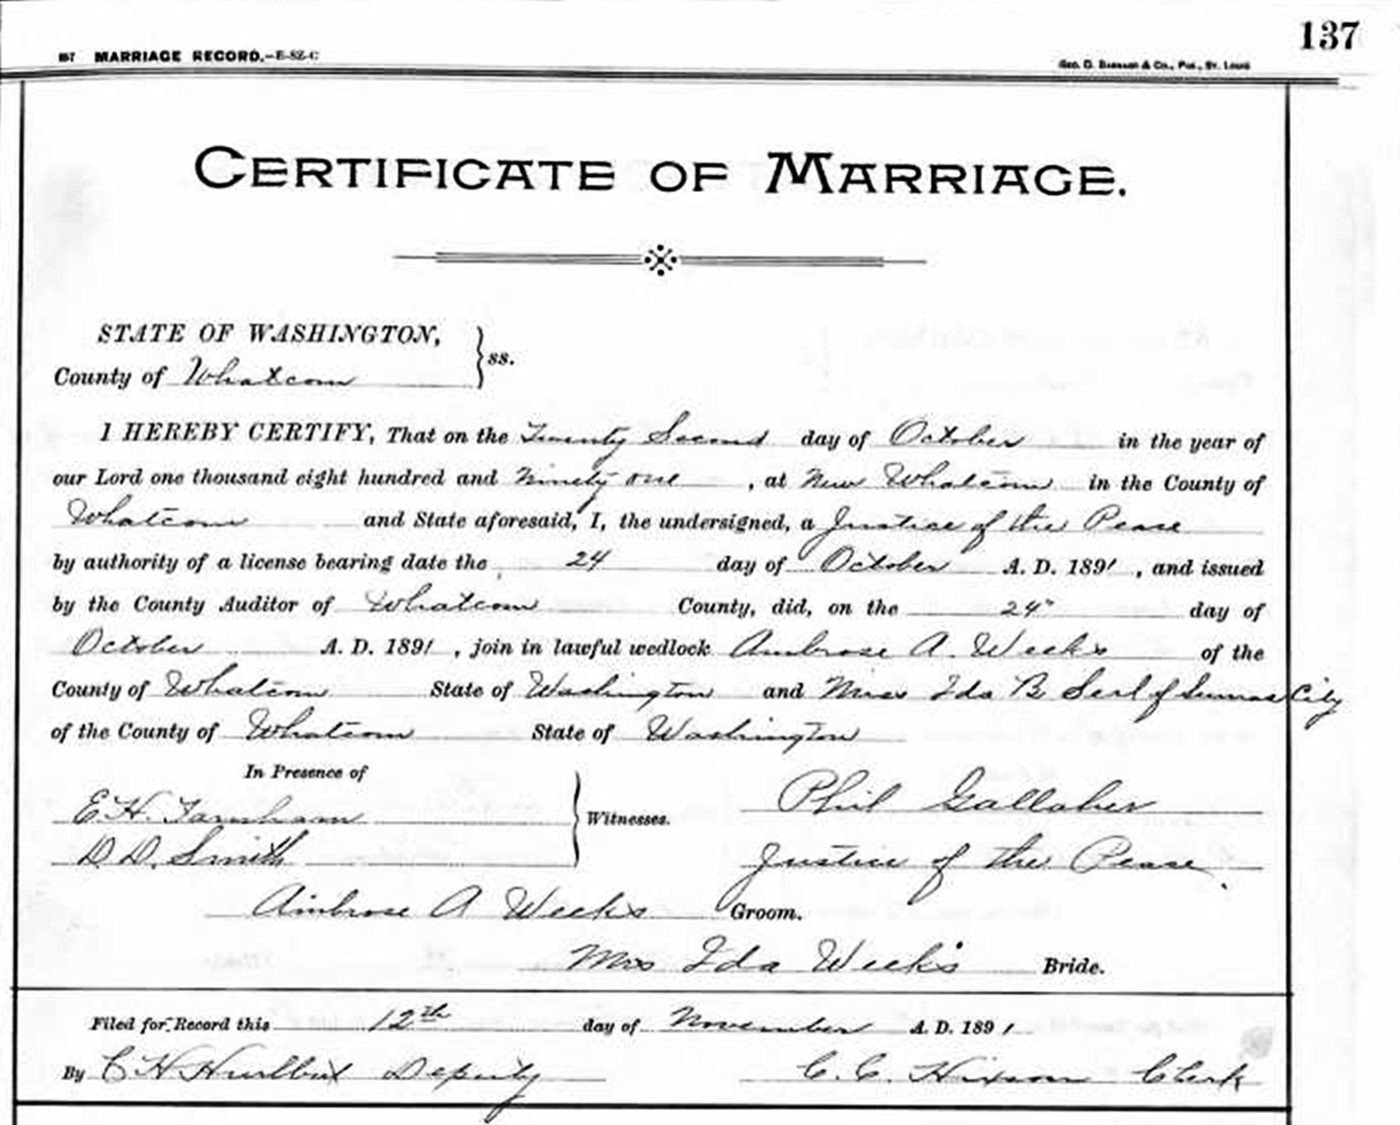 137
857 MARRIAGE RECORD.—E-SZ-C
GEO. D. BARNARD & CO., PUB., ST. LOUIS
CERTIFICATE OF MARRIAGE.
STATE OF WASHINGTON,
County of Whatcom } ss.
I HEREBY CERTIFY, That on the Twenty Second day of October in the year of
our Lord one thousand eight hundred and Ninety one, at New Whatcom in the County of
Whatcom and State aforesaid, I, the undersigned, a Justice of the Pease
by authority of a license bearing date the 24 day of October A. D. 1891, and issued
by the County Auditor of Whatcom County, did, on the 24" day of
October A. D. 1891, join in lawful wedlock Ambrose A. Weeks of the
County of Whatcom State of Washington and Miss Ida B Serl of Sumas City
of the County of Whatcom State of Washington
In Presence of
E. H. Farnham
D. D. Smith
Witnesses.
Phil Gallaher
Justice of the Pease.
Ambrose A Weeks Groom.
Mrs Ida Weeks Bride.
Filed for Record this 12th day of November A. D. 1891
By C H Hurlbut Deputy C. C. Hixson Clerk